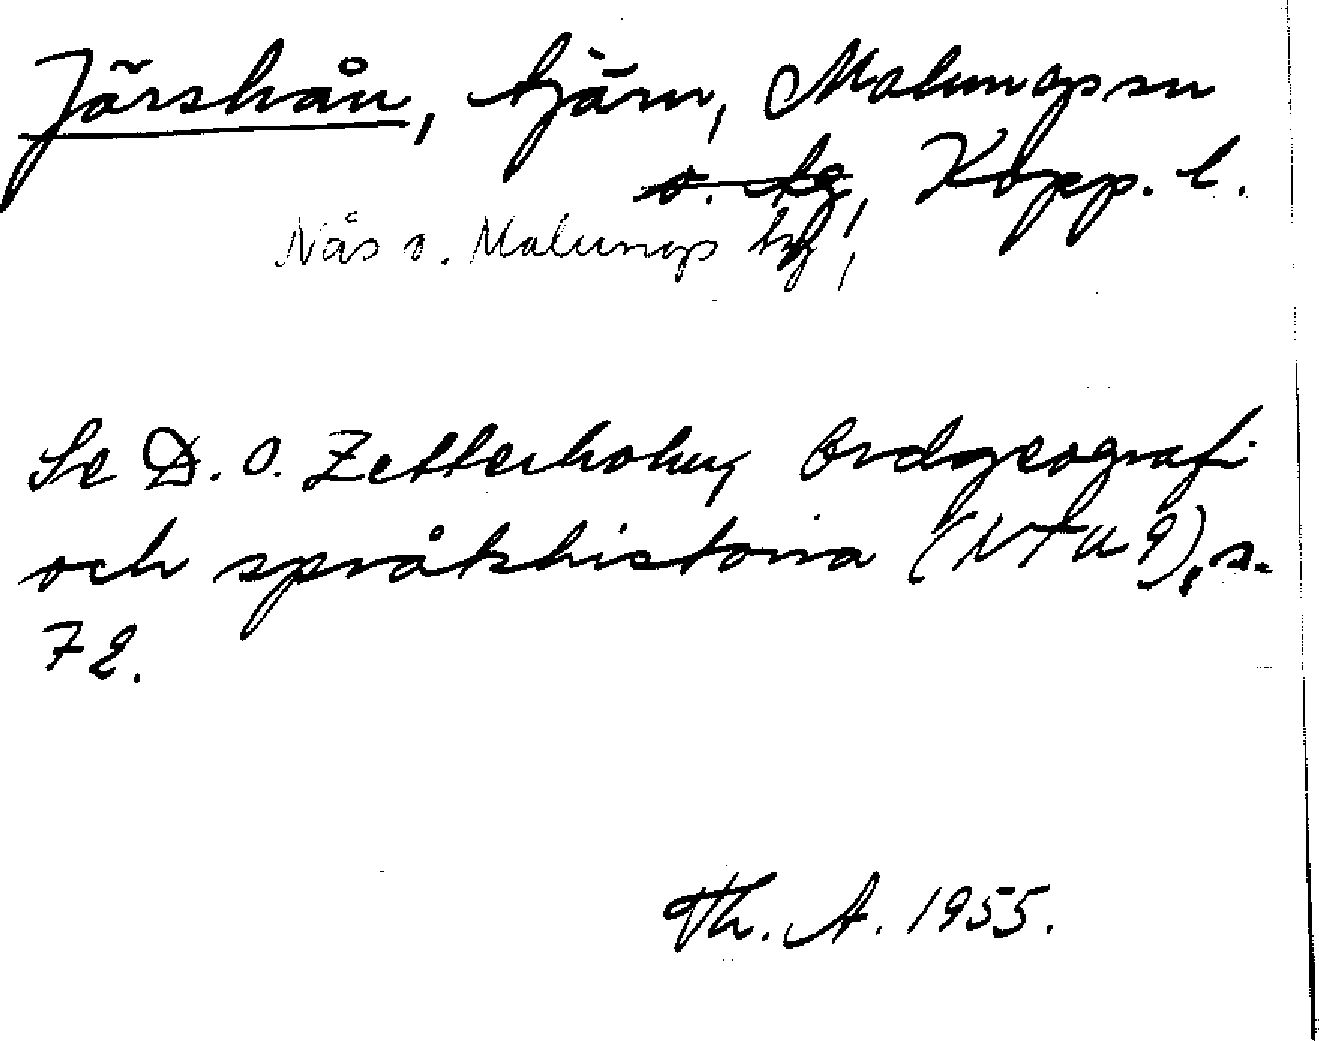 Jörshån, tjärn, Malungs sn
o. tg, Kopp. l.
Nås o. Malungs tg!
Se D. O. Zetterholm, Ordgeografi
och språkhistoria (NTU 9), s.
72.
Th. A. 1955.